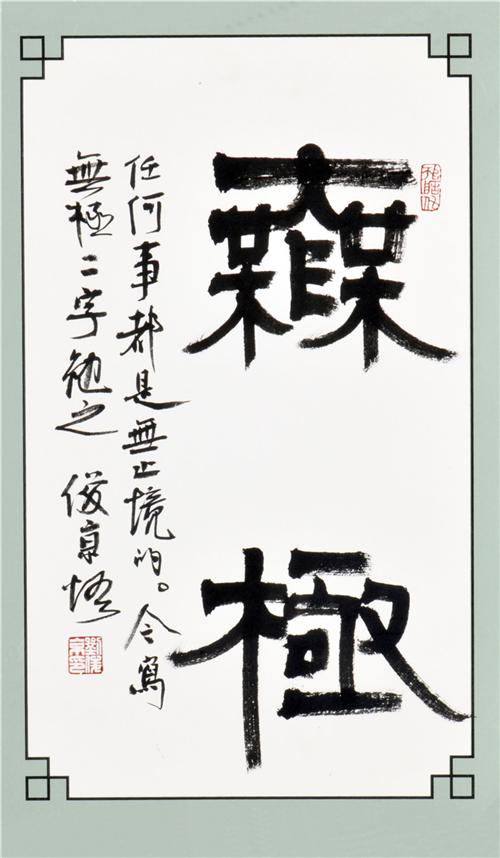 無極
任何事都是無止境的。今寫
無極二字勉之 俊京
劉俊京印